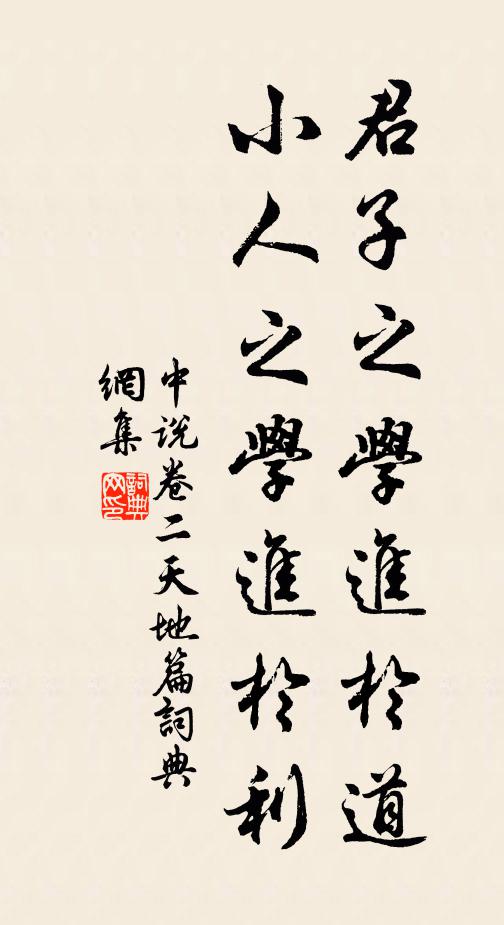 君子之學進於道
小人之學進於利
中说卷二天地篇詞典
網集
詞典
网印